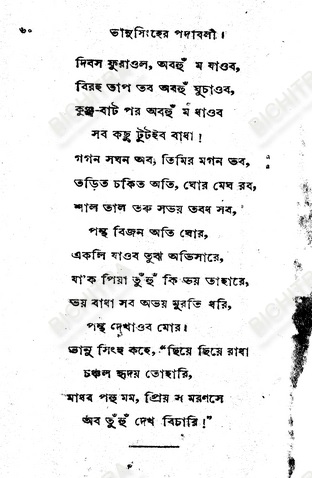 ৬০
ভানুসিংহের পদাবলী।
দিবস ফুরাওল, অবহুঁ ম যাওব,
বিরহ তাপ তব অবহুঁ ঘুচাওব,
কুঞ্জ-বাট পর অবহুঁ ম ধাওব
সব কছু টুটইব বাধা!
গগন সঘন অব, তিমির মগন ভব,
তড়িত চকিত অতি, ঘোর মেঘ রব,
শাল তাল তরু সভয় তবধ সব,
পন্থ বিজন অতি ঘোর,
একলি যাওব তুঝ অভিসারে,
যা'ক পিয়া তুঁহুঁ কি ভয় তাহারে,
ভয় বাধা সব অভয় মুরতি ধরি,
পন্থ দেখাওব মোর।
ভানু সিংহ কহে, “ছিয়ে ছিয়ে রাধা
চঞ্চল হৃদয় তোহারি,
মাধব পহু মম, প্রিয় স মরণসে
অব তুঁহুঁ দেখ বিচারি!”
BICHITRA